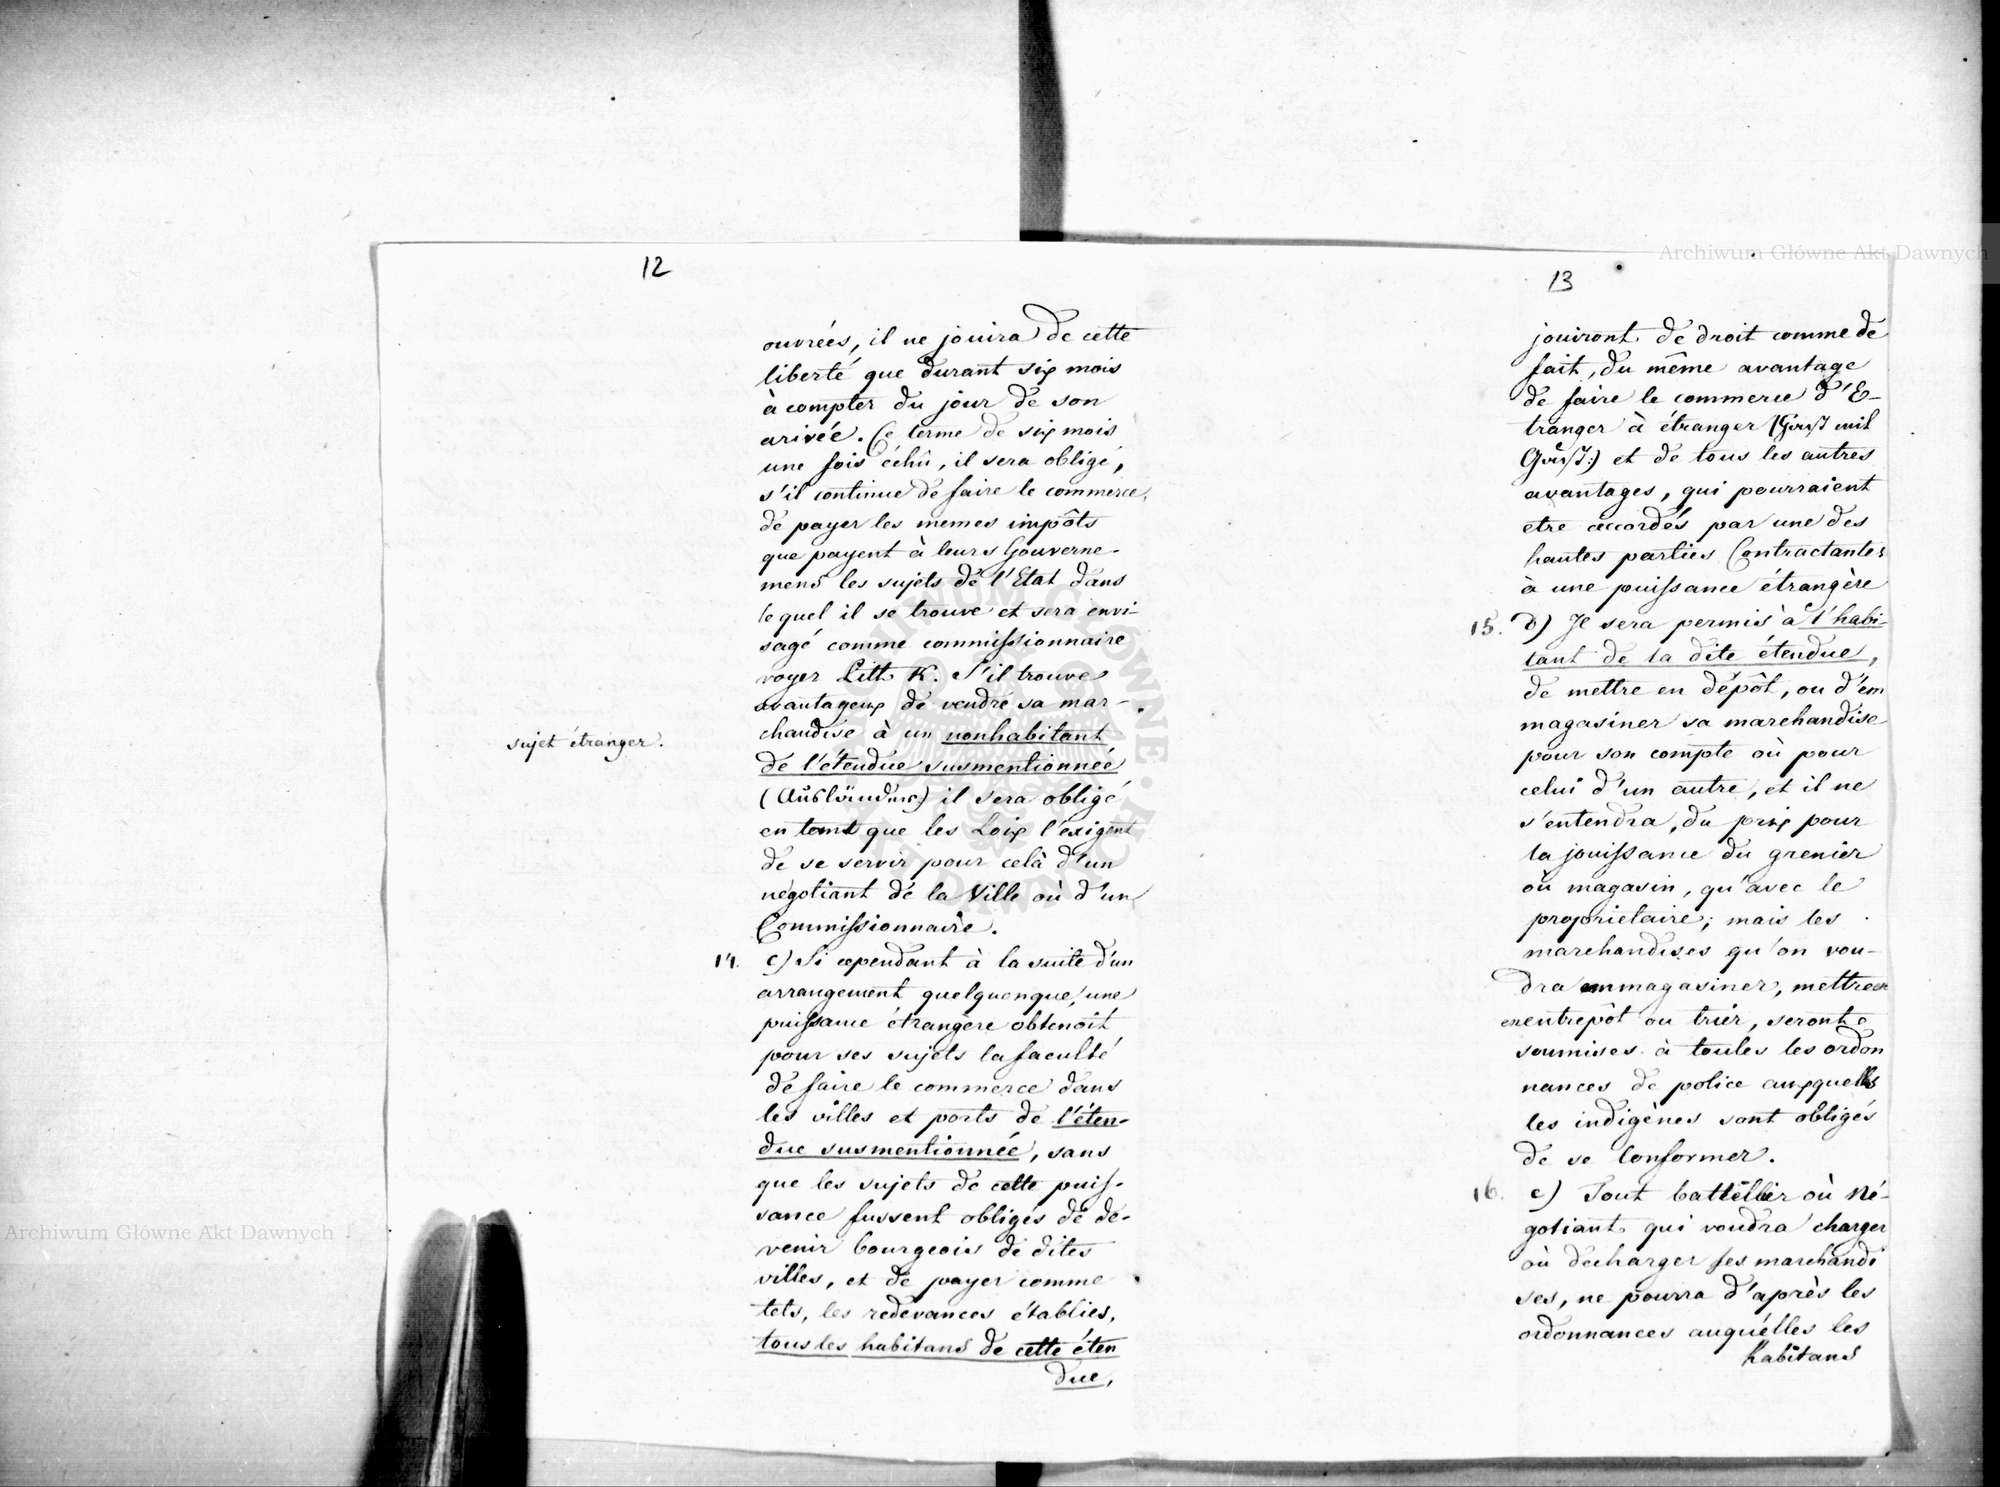 12
ouvrées, il ne jouira de cette
liberté que durant six mois
à compter du jour de son
arivée. Ce terme de six mois
une fois échû, il sera obligé,
s'il continue de faire le commerce,
de payer les memes impôts
que payent à leurs Gouverne-
mens les sujets de l'Etat dans
lequel il se trouve et sera envi-
sagé comme commissionnaire
voyer Litt. K. S'il trouve
avantageux de vendre sa mar-
chandise à un nonhabitant
sujet étranger.
de l'étendue susmentionnée
(Ausländer) il sera obligé
en tant que les Loix l'exigent
de se servir pour celà d'un
négotiant de la Ville où d'un
Commissionnaire.
14. c) Si cependant à la suite d'un
arrangement quelquonque, une
puissance étrangère obtenoit
pour ses sujets la faculté
de faire le commerce dans
les villes et ports de l'éten-
due susmentionnée, sans
que les sujets de cette puis-
sance fussent obligés de de-
venir bourgeois de dites
villes, et de payer comme
tels, les redevances établies,
tous les habitans de cette éten
due,
13
jouiront de droit comme de
fait, du même avantage
de faire le commerce d'E-
tranger à étranger (Gast mit
Gast:) et de tous les autres
avantages, qui pourraient
etre accordés par une des
hautes parties Contractantes
à une puissance étrangère
15. d) Il sera permis à l'habi-
tant de la dite étendue,
de mettre en dépôt, ou d'em
magasiner sa marchandise
pour son compte où pour
celui d'un autre, et il ne
s'entendra, du prix pour
la jouissance du grenier
où magasin, qu'avec le
proprietaire; mais les
marchandises qu'on vou-
dra emmagasiner, mettre
en entrepôt ou trier, seront
soumises à toutes les ordon
nances de police auxquelles
les indigènes sont obligés
de se conformer.
16. e) Tout battellier où Né-
gotiant qui voudra charger
où decharger ses marchandi
ses, ne pourra d'après les
ordonnances auquélles les
habitans
Archiwum Główne Akt Dawnych
Archiwum Główne Akt Dawnych